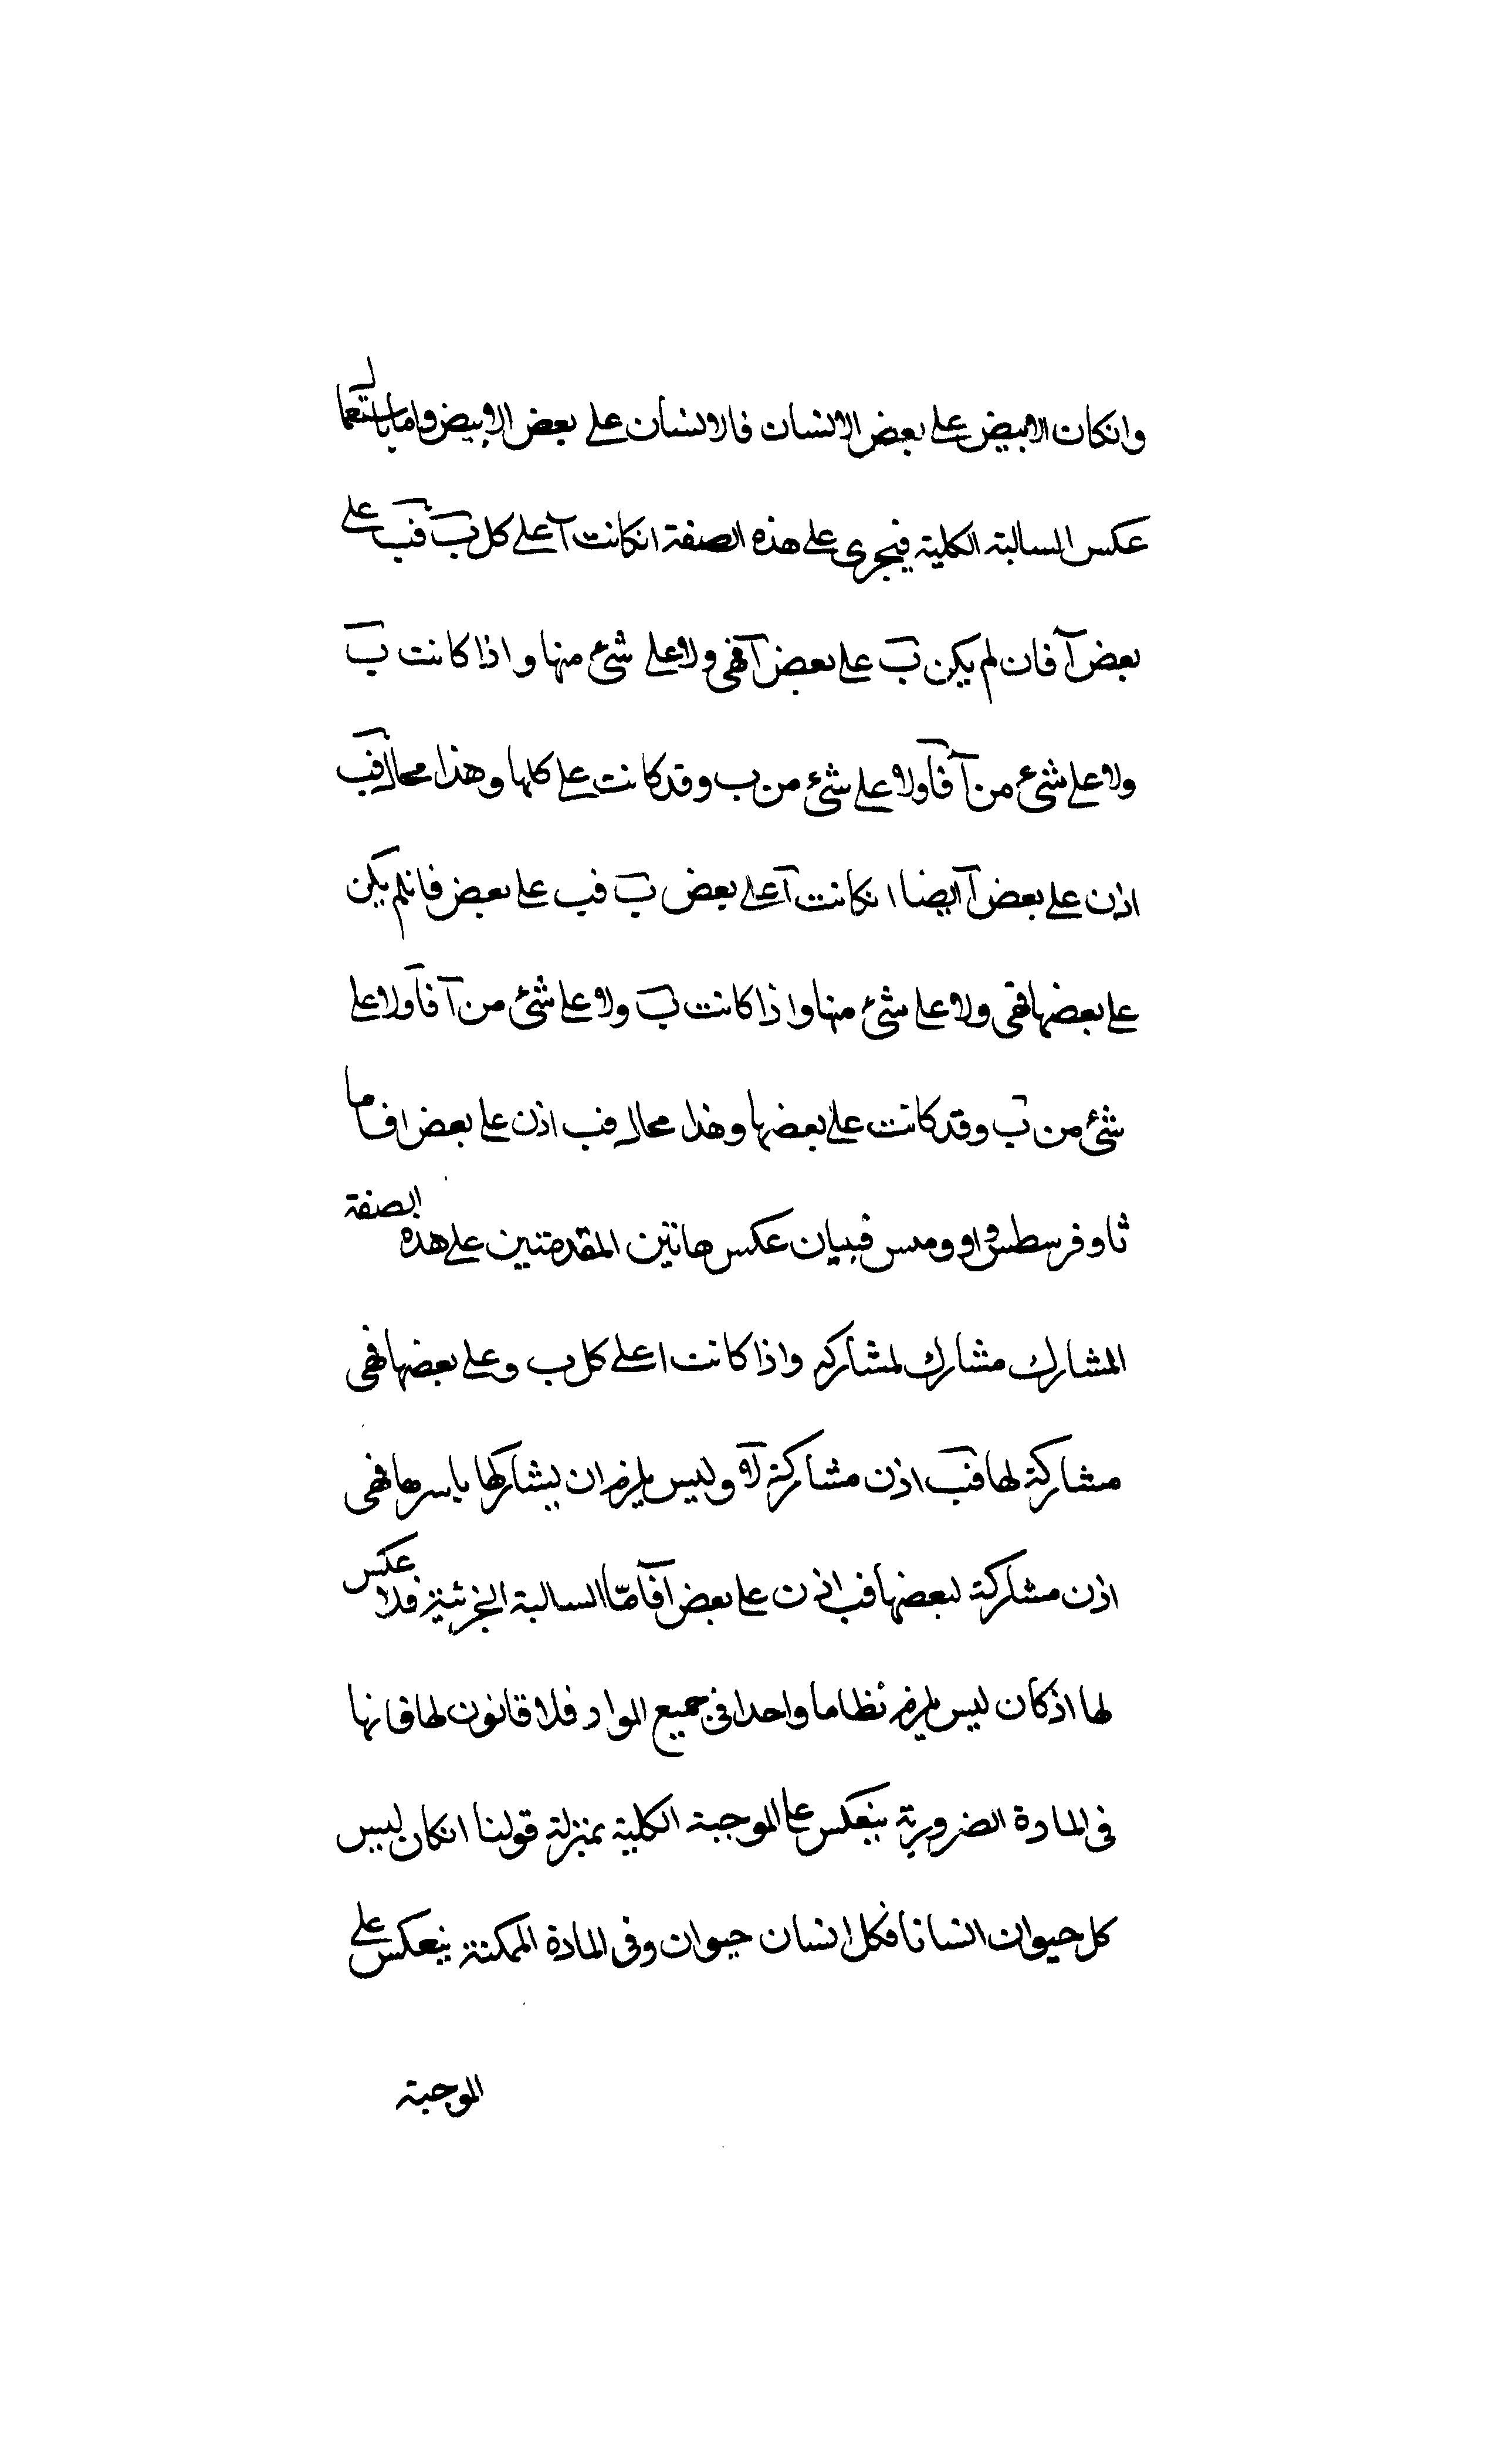 وانكان الابيض على بعض الانسان فالانسان على بعض الابيض واما باستعمال
عكس السالبة الكلية فيجرى على هذه الصفة انكانت آ على كل ب فب على
بعض آ فان لم يكن ب على بعض آ فهى ولا على شئ منها واذا كانت ب
ولا على شئ من آ فآ ولا على شئ من ب وقد كانت على كلها وهذا محال فب
اذن على بعض آ ايضا انكانت آ على بعض ب فب على بعض فانلم يكن
على بعضها فهى ولا على شئ منها واذا كانت ب ولا على شئ من آ فآ ولا على
شئ من ب وقد كانت على بعضها وهذا محال فب اذن على بعض ا فاما
ثاوفرسطس واوومس فبيان عكس هاتين المقدمتين على هذه الصفة
المشارك مشارك لمشاركه واذا كانت ا على كل ب وعلى بعضها فهى
مشاركة لها فب اذن مشاركة لآ وليس يلزم ان يشاركها باسرها فهى
اذن مشاركة لبعضها فب اذن على بعض آ فآمّا السالبة الجزئية فلا عكس
لها اذ كان ليس يلزم نظاما واحدا فى جميع المواد فلا قانون لها فانها
فى المادة الضرورية ينعكس على الموجبة الكلية بمنزلة قولنا انكان ليس
كل حيوان انسانا فكل انسان حيوان وفى المادة الممكنة ينعكس على
الموجبة